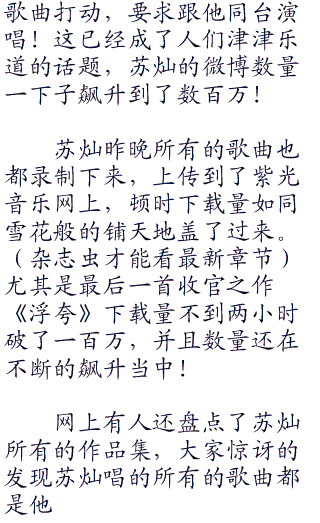 歌曲打动，要求跟他同台演
唱！这已经成了人们津津乐
道的话题，苏灿的微博数量
一下子飙升到了数百万！
苏灿昨晚所有的歌曲也
都录制下来，上传到了紫光
音乐网上，顿时下载量如同
雪花般的铺天地盖了过来。
（杂志虫才能看最新章节）
尤其是最后一首收官之作
《浮夸》下载量不到两小时
破了一百万，并且数量还在
不断的飙升当中！
网上有人还盘点了苏灿
所有的作品集，大家惊讶的
发现苏灿唱的所有的歌曲都
是他